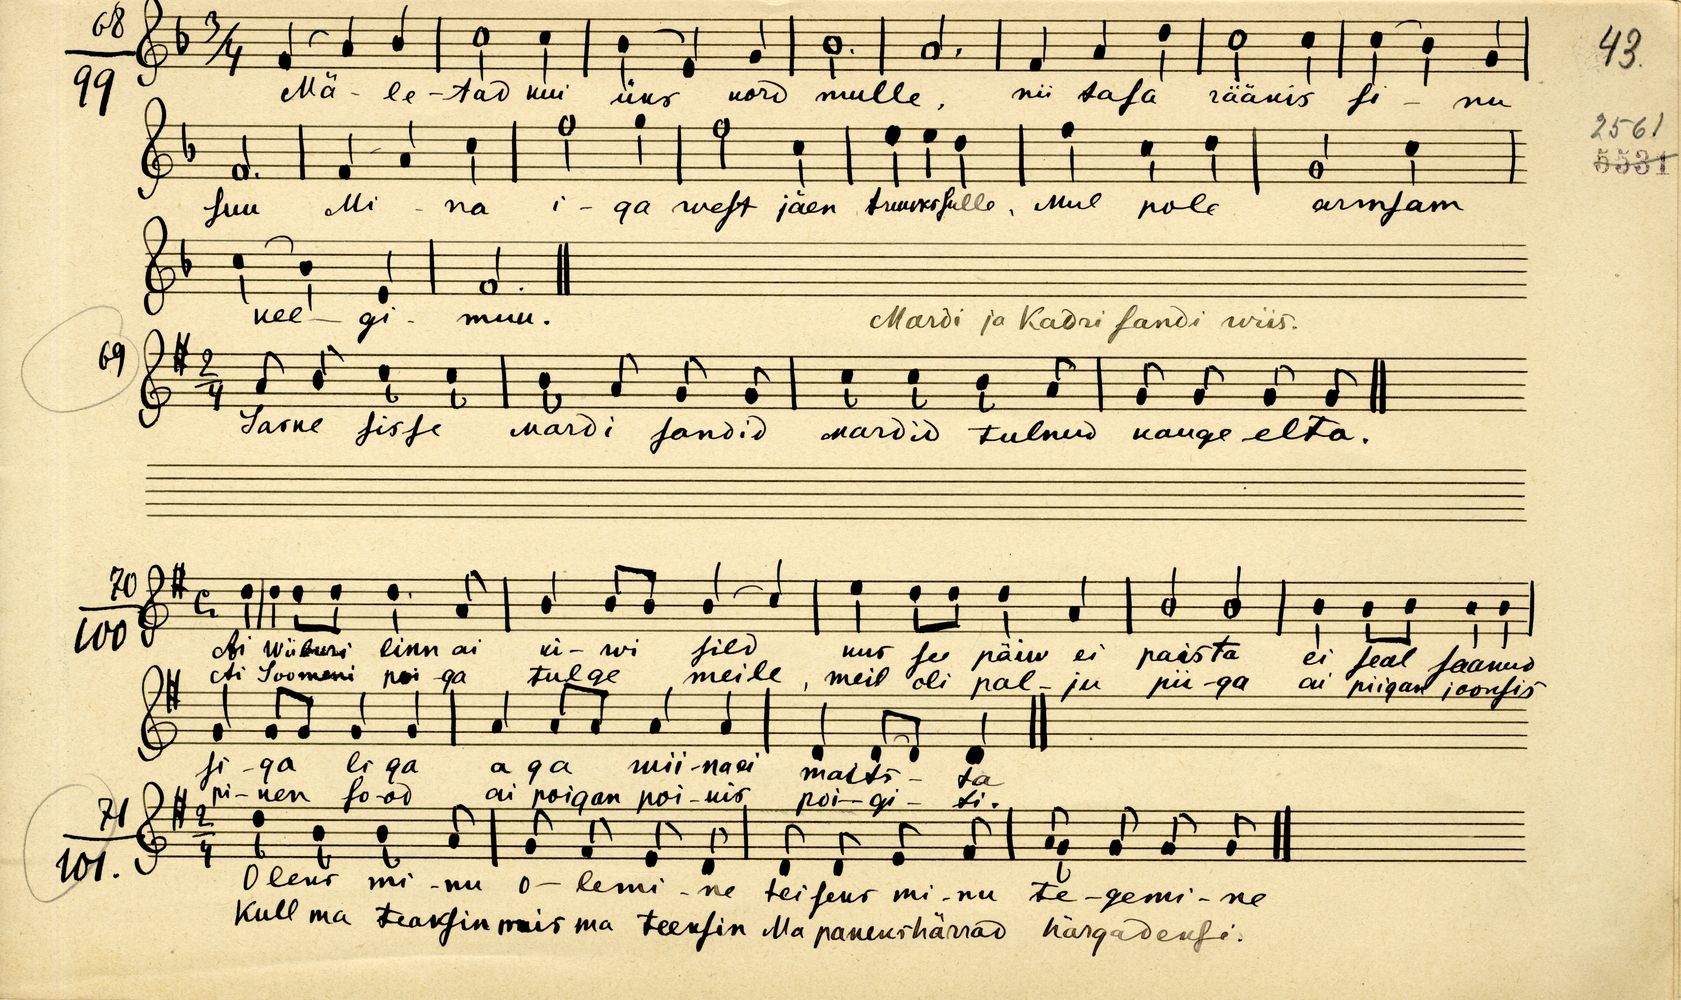 68
99
43.
3/4
Mä-le-tad kui üks kord mulle, nii tasa rääkis si-nu
2561
5531
suu Mi-na i-ga west jäen truuks sulle, Mul pole armsam
kee-gi-muu.
Mardi ja Kadri sandi wiis.
69
2/4
Laske sisse mardi sandid mardid tulnud kauge elta.
70
100
C
Ai Wiiburi linn ai ki-wi sild kus se päiw ei paista ei seal saanud
Ai Soomeni poi-ga tulge meile, meil oli pal-ju pii-ga ai piigan joonsis
si-ga li ga a ga wii-naei maits-ta
pi-ken so-od ai poigan poi-kis poi-gi-ti.
71
101.
2/4
Oleks mi-nu o-lemi-ne teiseks mi-nu te-gemi-ne
Kull ma teaksin mis ma teeksin Ma paneks härrad härgadeksi.